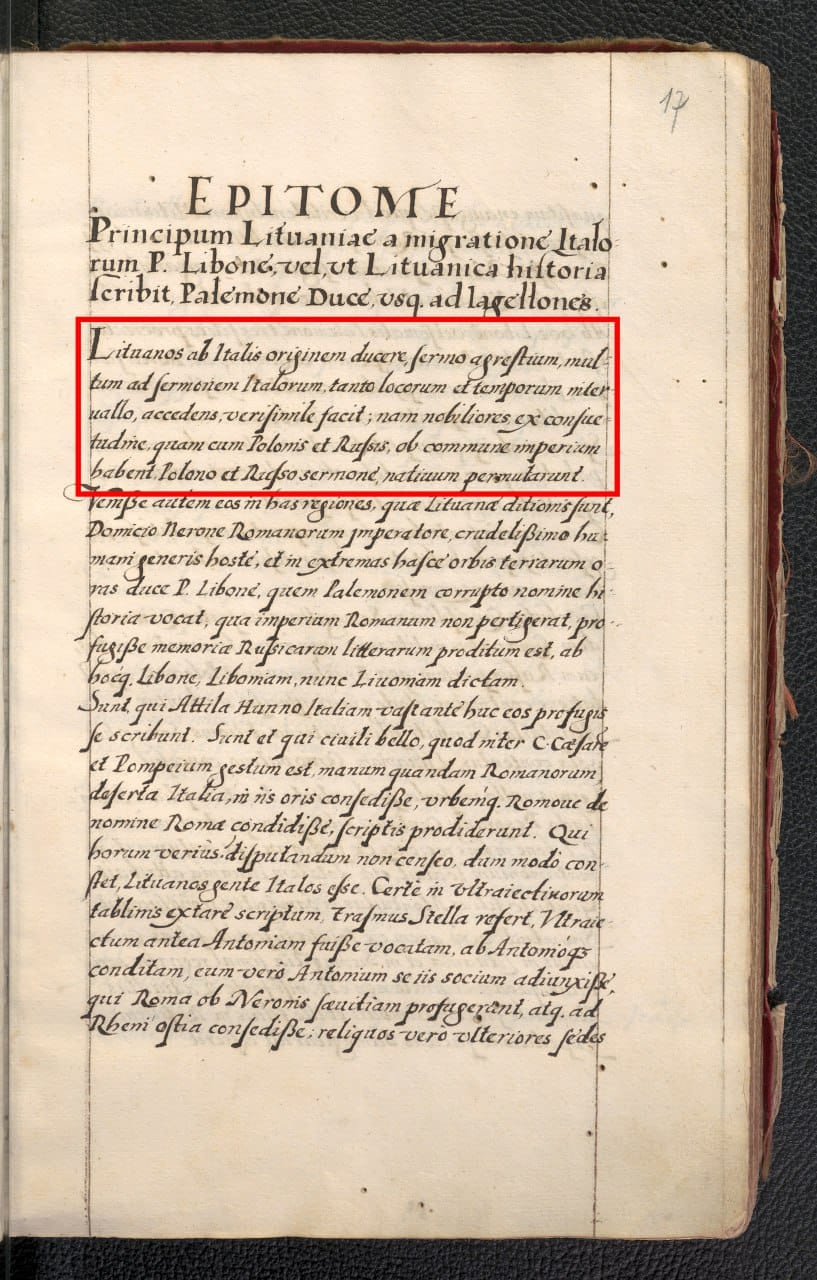 17
EPITOME
Principum Lituaniae a migratione Italo
rum P. Libone, vel, vt Lituanica historia
scribit, Palemone Duce, vsq. ad Iagellones.
Lituanos ab Italis originem ducere, sermo agrestium, mul-
tum ad sermonem Italorum, tanto locorum et temporum inter
uallo, accedens, verisimile facit; nam nobiliores, ex consue-
tudine, quam cum Polonis et Russis, ob commune imperium
habent, Polono et Russo sermone, natiuum permutarunt.
Venisse autem eos in has regiones, quæ Lituanæ ditionis sunt,
Domicio Nerone Romanorum imperatore, crudelissimo hu-
mani generis hoste, et in extremas hasce orbis terrarum o-
ras duce P. Libone, quem Palemonem corrupto nomine hi-
storia vocat, qua imperium Romanum non pertigerat, pro-
fugisse memoriæ Russicarum litterarum proditum est, ab
hocq. Libone, Liboniam, nunc Liuoniam dictam.
Sunt, qui Attila Hunno Italiam vastante huc eos profugis
se scribunt. Sunt et qui ciuili bello, quod inter C. Cæsare
et Pompeium gestum est, manum quandam Romanorum,
deserta Italia, in iis oris consedisse, vrbemq. Romoue de
nomine Romæ condidisse, scriptis prodiderunt. Qui
horum verius: disputandum non censeo, dum modo con-
stet, Lituanos gente Italos esse. Certe in Vltraiectinorum
tablinis extare scriptum, Erasmus Stella refert, Vltraie-
ctum antea Antoniam fuisse vocatam, ab Antonioq3
conditam, eum vero Antonium se iis socium adiunxisse,
qui Roma ob Neronis sæuitiam profugerant, atq. ad
Rheni ostia consedisse; reliquos vero vlteriores sedes